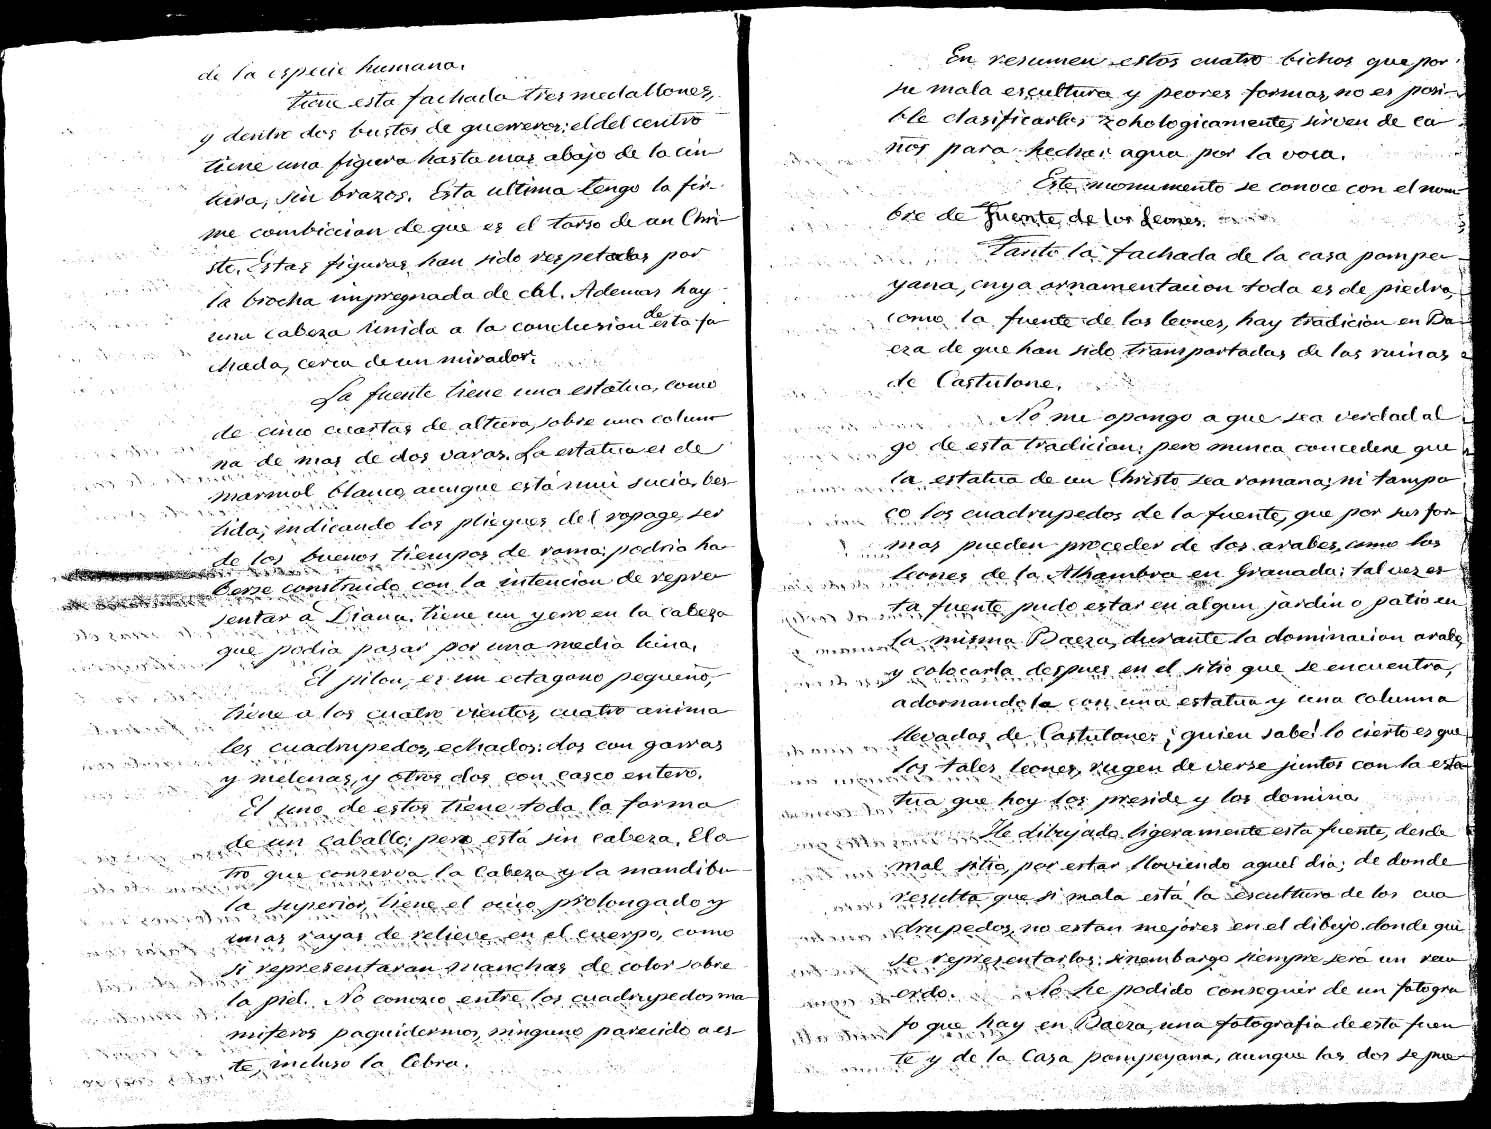 de la especie humana.
Tiene esta fachada tres medallones,
y dentro dos bustos de guerreros; el del centro
tiene una figura hasta mas abajo de la cin
tura, sin brazos. Esta ultima tengo la fir-
me combiccion de que es el torso de un Chri-
sto. Estas figuras han sido respetadas por
la brocha impregnada de cal. Ademas hay
una cabeza unida a la conclusion de esta fa
chada, cerca de un mirador.
La fuente tiene una estatua, como
de cinco cuartas de altura, sobre una colum
na de mas de dos varas. La estatua es de
marmol blanco, aunque está mui sucia, bes
tida; indicando los pliegues del ropage, ser
de los buenos tiempos de roma; podria ha
berse construido con la intencion de repre-
sentar à Diana. tiene un yerro en la cabeza
que podia pasar por una media luna.
El pilon, es un octagono pequeño,
tiene a los cuatro vientos, cuatro anima
les cuadrupedos, echados: dos con garras
y melenas, y otros dos con casco entero.
El uno de estos tiene toda la forma
de un caballo; pero está sin cabeza. El o-
tro que conserva la cabeza y la mandibu-
la superior, tiene el ocico prolongado y
unas rayas de relieve en el cuerpo, como
si representaran manchas de color sobre
la piel. No conozco entre los cuadrupedos ma
miferos paquidermos, ninguno parecido a es
te, incluso la Cebra.
En resumen estos cuatro bichos que por
su mala escultura y peores formas, no es posi-
ble clasificarlos zohologicamente, sirven de ca
ños para hechar agua por la voca.
Este monumento se conoce con el nom
bre de Fuente de los Leones.
Tanto la fachada de la casa pompe-
yana, cuya ornamentacion toda es de piedra,
como la fuente de los leones, hay tradicion en Ba
eza de que han sido transportadas de las ruinas
de Castulone.
No me opongo a que sea verdad al
go de esta tradicion; pero nunca concedere que
la estatua de un Christo sea romana; ni tampo
co los cuadrupedos de la fuente, que por sus for
mas pueden proceder de los arabes, como los
leones de la Alhambra en Granada: tal vez es
ta fuente pudo estar en algun jardin o patio en
la misma Baeza, durante la dominacion arabe,
y colocarla despues en el sitio que se encuentra,
adornandola con una estatua y una columna
llevadas de Castulone: ¡quien sabe! lo cierto es que
los tales leones, rugen de verse juntos con la esta
tua que hoy los preside y los domina.
He dibujado ligeramente esta fuente, desde
mal sitio, por estar lloviendo aquel dia; de donde
resulta que si mala está la escultura de los cua
drupedos, no estan mejores en el dibujo donde qui
se representarlos: sinembargo siempre será un recu
erdo. No he podido conseguir de un fotogra
fo que hay en Baeza, una fotografia de esta fuen
te y de la Casa pompeyana, aunque las dos se pue-